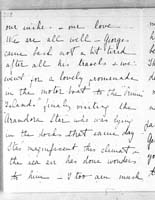 our wishes - our love
We are all well - George
came back not a bit tired
after all his travels & we
went for a lovely promenade
in the motor boat to the "Prince
Islands" finally visiting the
"Arandora Star" who was lying
in the docks that same day
She's magnificent the climate &
the sea air has done wonders
to him - I too am much